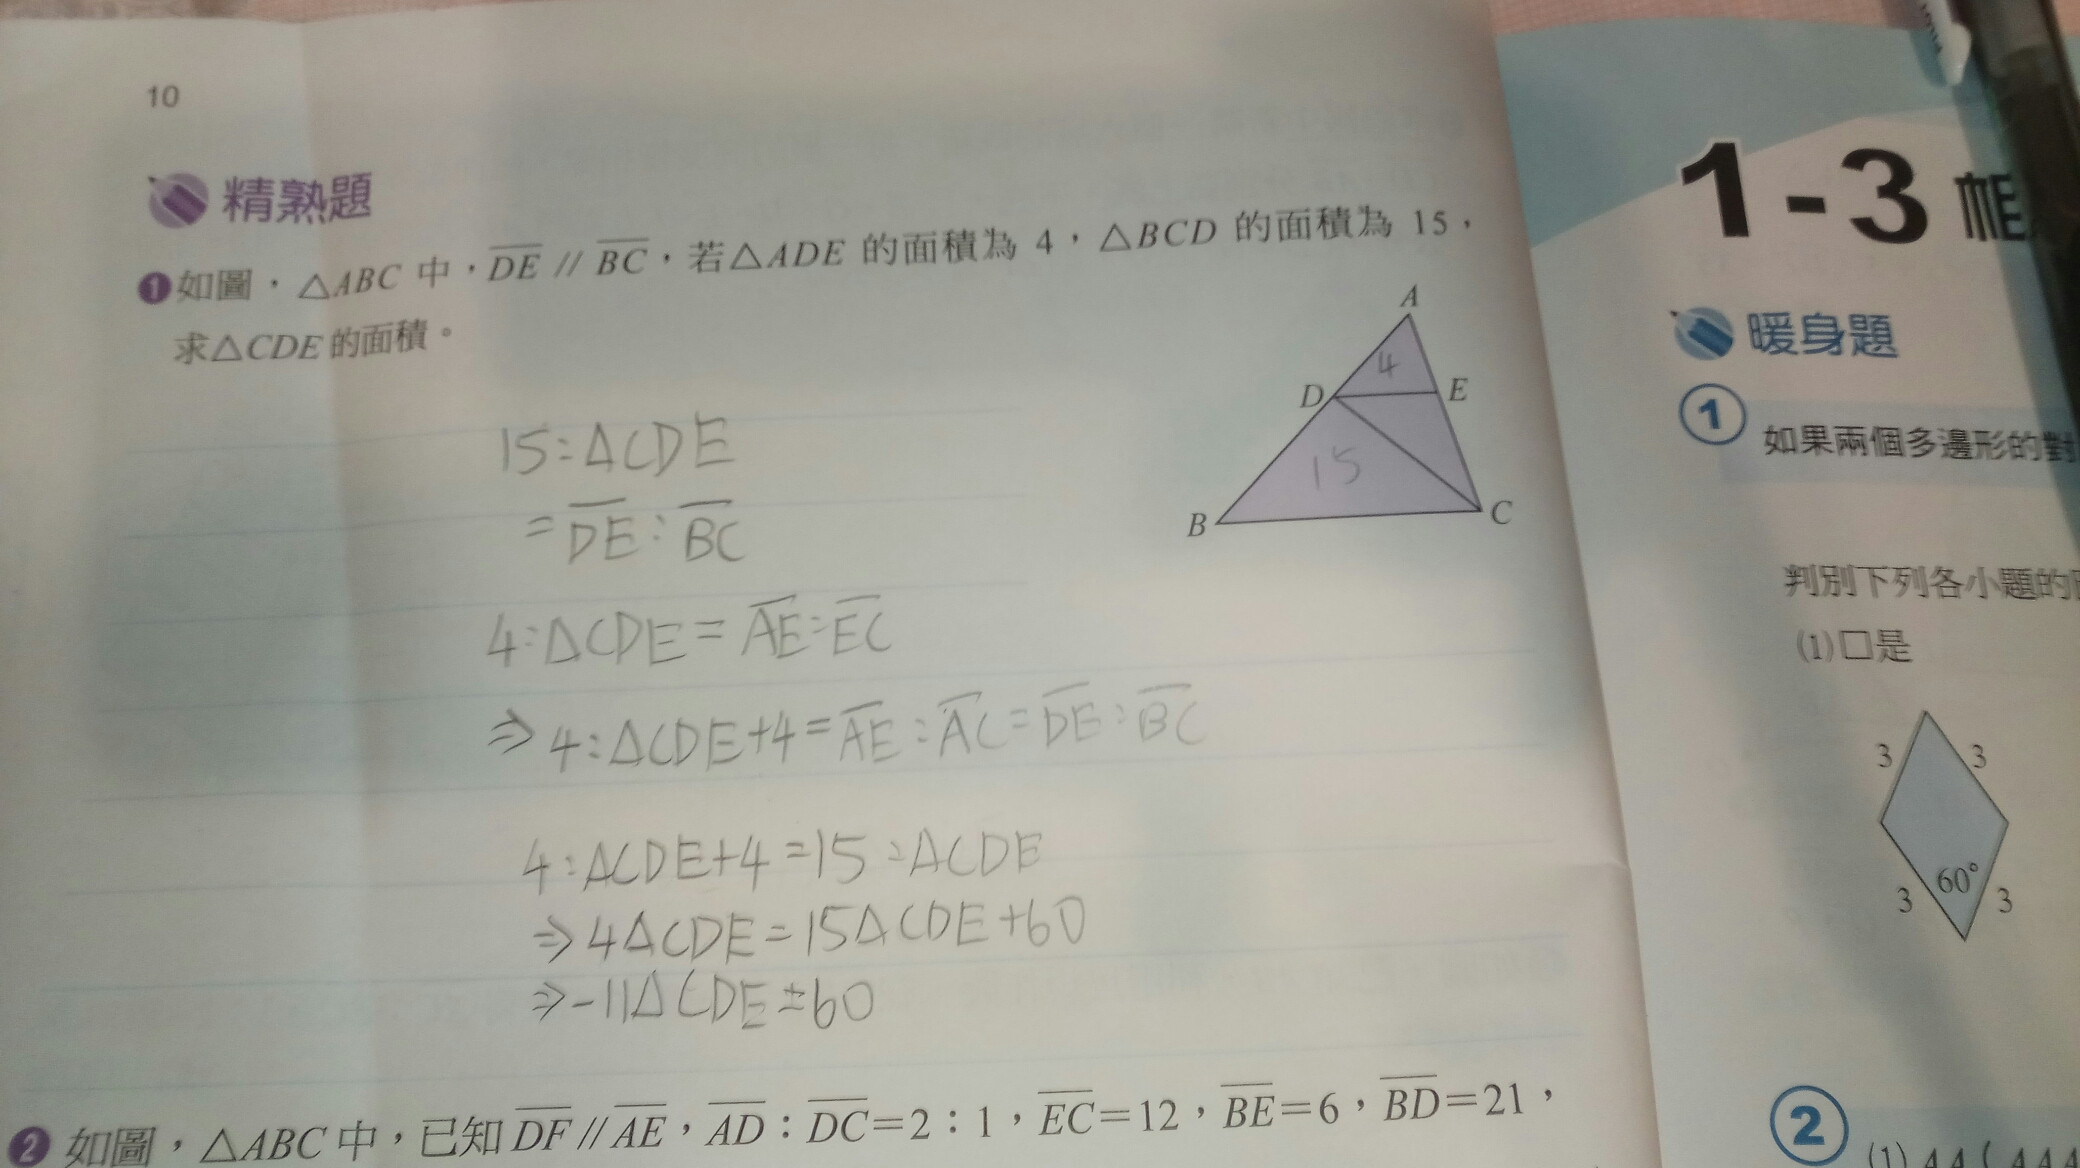 10
精熟題
❶如圖，△ABC 中，DE // BC，若△ADE 的面積為 4，△BCD 的面積為 15，
求△CDE 的面積。
A
4
D
E
15
B
C
15:△CDE
=DE:BC
4:△CDE=AE:EC
⇒4:△CDE+4=AE:AC=DE:BC
4:△CDE+4=15:△CDE
⇒4△CDE=15△CDE+60
⇒-11△CDE=60
❷如圖，△ABC 中，已知 DF // AE，AD：DC=2：1，EC=12，BE=6，BD=21，
1-3
暖身題
①
如果兩個多邊形的對
判別下列各小題的
(1)□是
3
3
60°
3
3
②